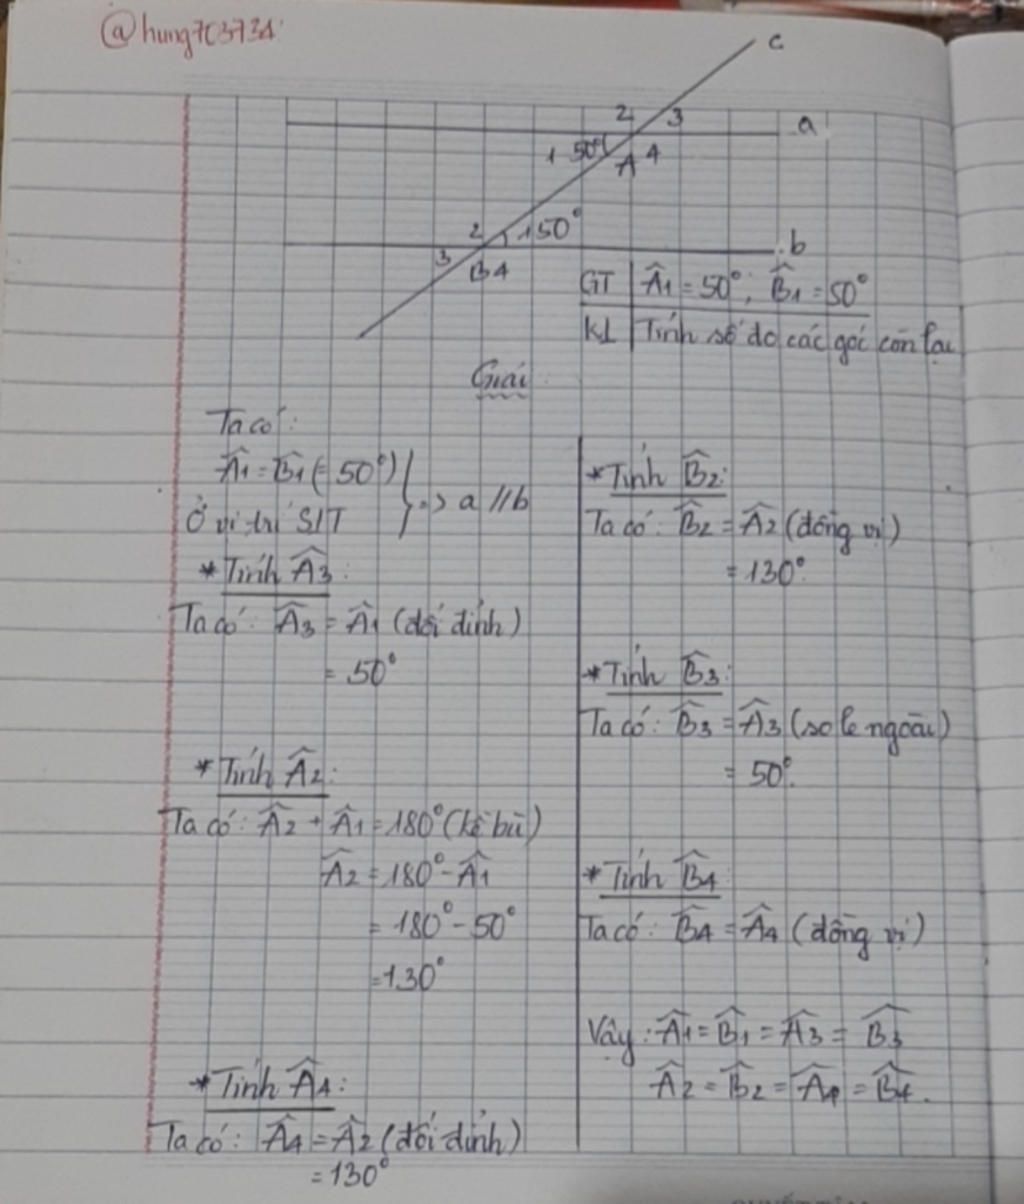 @hung703734
c
2 3 a
1 50° A 4
2 1 50°
3 B 4 b
GT | Â1 = 50°; B̂1 = 50°
KL | Tính số đo các góc còn lại
Giải:
Ta có:
Â1 = B̂1 (= 50°)
Ở vị trí SLT } => a // b
* Tính Â3:
Ta có: Â3 = Â1 (đối đỉnh)
= 50°
* Tính Â2:
Ta có: Â2 + Â1 = 180° (kề bù)
Â2 = 180° - Â1
= 180° - 50°
= 130°
* Tính Â4:
Ta có: Â4 = Â2 (đối đỉnh)
= 130°
* Tính B̂2:
Ta có: B̂2 = Â2 (đồng vị)
= 130°.
* Tính B̂3:
Ta có: B̂3 = Â3 (so le ngoài)
= 50°.
* Tính B̂4:
Ta có: B̂4 = Â4 (đồng vị)
Vậy: Â1 = B̂1 = Â3 = B̂3
Â2 = B̂2 = Â4 = B̂4.